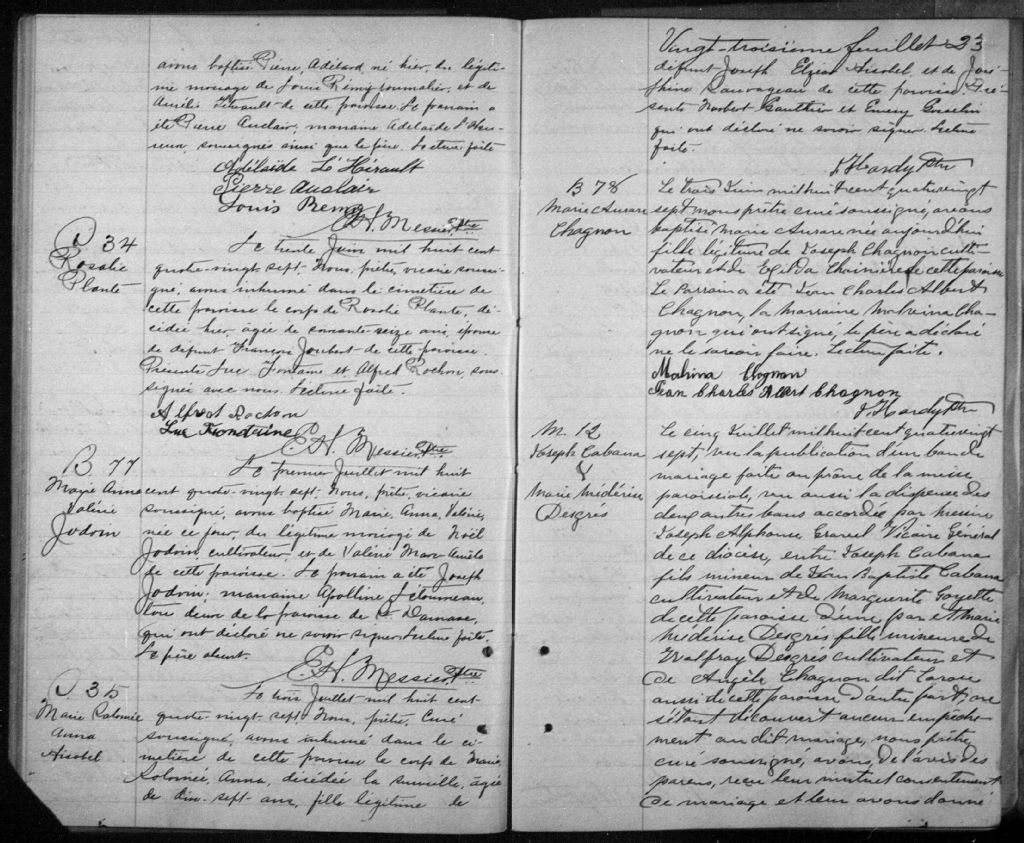 avons baptisé Pierre, Adélard, né hier, du légiti-
me mariage de Louis Remy journalier, et de
Aurélie Hérault de cette paroisse. Le parrain a
été Pierre Auclair, marraine Adélaïde L'Heu-
reux, soussignés ainsi que le père. Lecture faite
Adélaïde Le Hérault
Pierre Auclair
Louis Remy
E. H. Messier, Ptre
S 34
Rosalie
Plante
Le trente Juin mil huit cent
quatre-vingt sept. Nous, prêtre, vicaire soussi-
gné, avons inhumé dans le cimetière de
cette paroisse le corps de Rosalie Plante, dé-
cédée hier, agée de soixante-seize ans, épouse
de défunt François Joubert de cette paroisse.
Présents Luc Fontaine et Alfred Rochon, sous-
signés avec nous. Lecture faite.
Alfred Rochon
Luc Fiondaine
E. H. Messier, Ptre
B 77
Marie Anna
Valérie
Jodoin
Le premier Juillet mil huit
cent quatre-vingt sept. Nous, prêtre, vicaire
soussigné, avons baptisé Marie, Anna, Valérie,
née ce jour, du légitime mariage de Noël
Jodoin, cultivateur, et de Valérie Marc-Aurèle
de cette paroisse. Le parrain a été Joseph
Jodoin; marraine Apolline Létourneau,
tous deux de la paroisse de St Damase,
qui ont déclaré ne savoir signer. Lecture faite.
Le père absent.
E. H. Messier, Ptre
S 35
Marie Salomée
Anna
Le trois Juillet mil huit cent
quatre-vingt sept. Nous, prêtre, Curé
soussigné, avons inhumé dans le ci-
metière de cette paroisse le corps de Marie,
Salomée, Anna, décédée la surveille, agée
de dix-sept ans, fille légitime de
Vingt-troisième feuillet 23
défunt Joseph Elzéar et de José-
phine Sauvageau de cette paroisse. Pré-
sents Norbert Gauthier et Emery Gosselin
qui ont déclaré ne savoir signer. Lecture
faite.
J. Hardy Ptre
B 78
Marie Aurore
Chagnon
Le trois Juin mil huit cent quatre vingt
sept nous prêtre curé soussigné, avons
baptisé Marie Aurore née aujourd'hui
fille légitime de Joseph Chagnon culti-
vateur et de Exilda Chainière de cette paroisse
Le Parrain a été Jean Charles Albert
Chagnon, la Marraine Malvina Cha-
gnon qui ont signé, le père a déclaré
ne le savoir faire. Lecture faite.
Malvina Chagnon
Jean Charles Albert Chagnon
J. Hardy Ptre
M. 12
Joseph Cabana
&
Marie Médérise
Desgrés
Le cinq Juillet mil huit cent quatre vingt
sept, vu la publication d'un ban de
mariage faite au prône de la messe
paroissiale, vu aussi la dispense des
deux autres bans accordée par messire
Joseph Alphonse Gravel Vicaire Général
de ce diocèse, entre Joseph Cabana
fils mineur de Jean Baptiste Cabana
cultivateur et de Marguerite Goyette
de cette paroisse d'une part et Marie
Médérise Desgrés fille mineure de
Wolfray Desgrés cultivateur et
de Angèle Chagnon dit Larose
aussi de cette paroisse d'autre part, ne
s'étant découvert aucun empêche-
ment au dit mariage, nous prêtre
curé soussigné, avons, de l'avis des
parens, reçu leur mutuel consentement
de mariage et leur avons donné